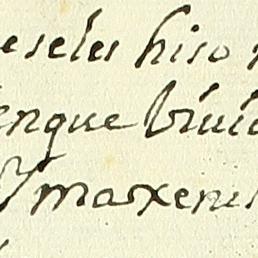 eseles hiso
enque biuia
y marxenes